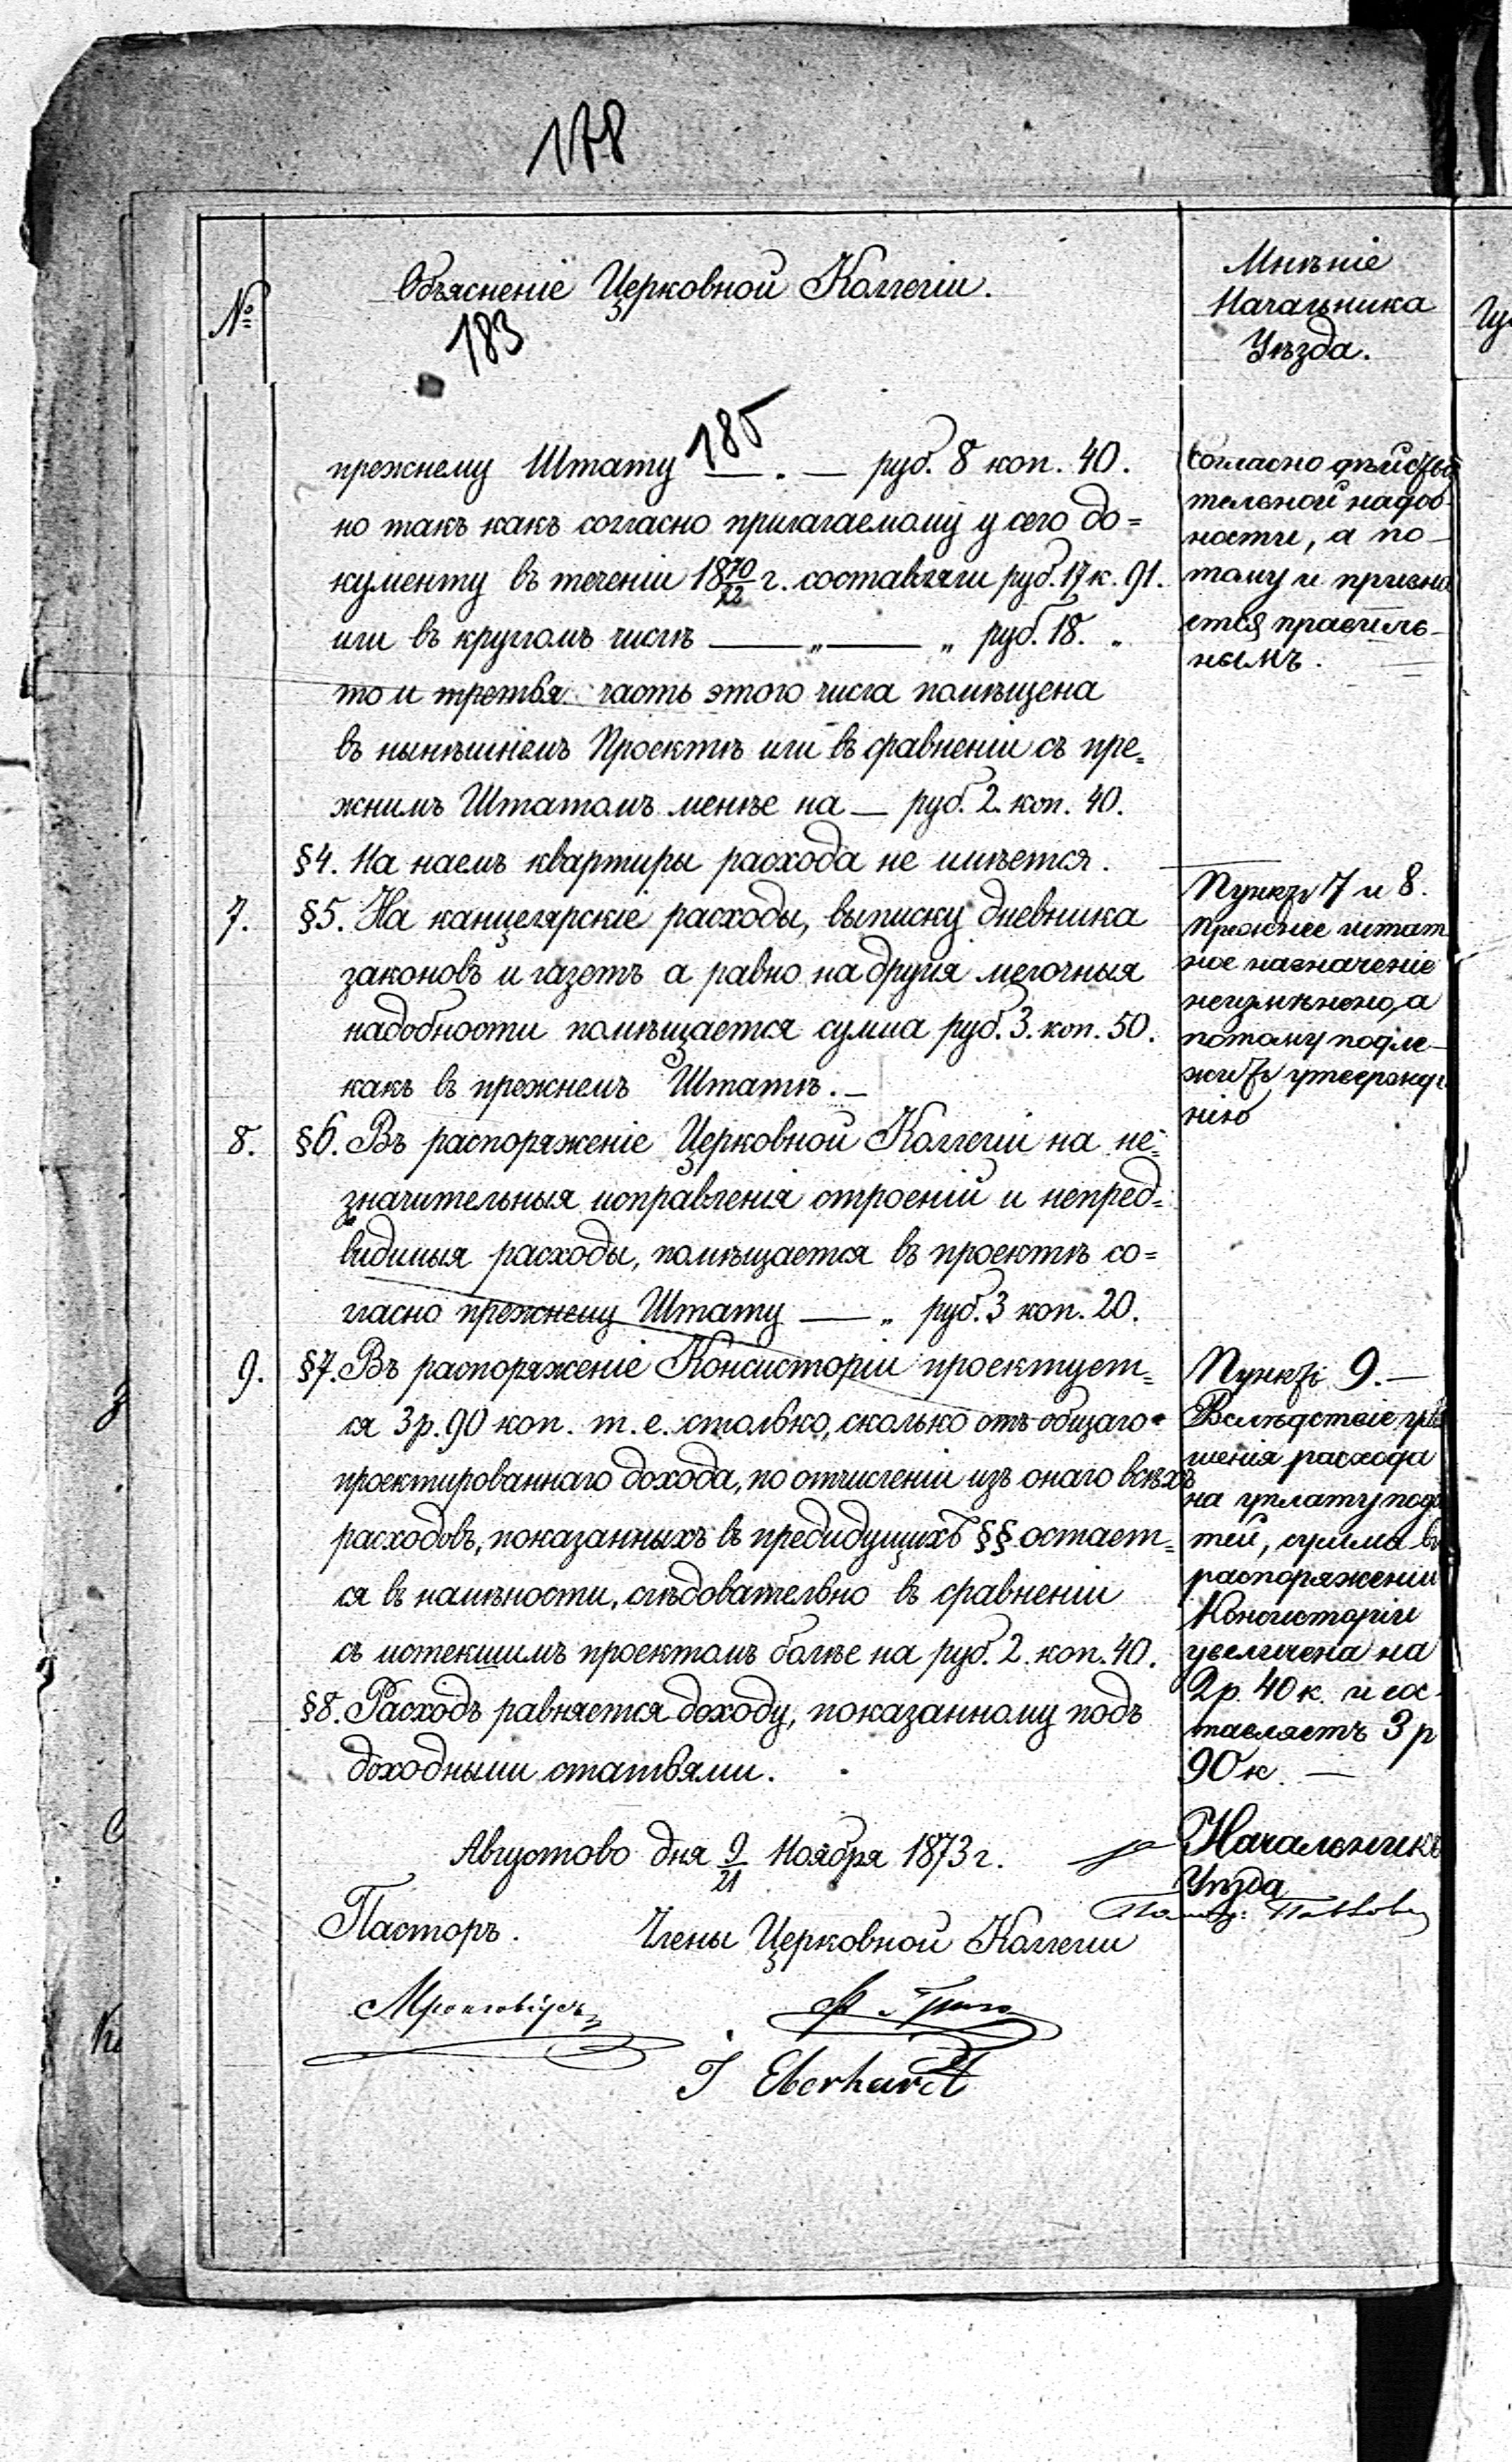 178
№
Объясненіе Церковной Коллегіи.
183
Мнѣніе
Начальника
Уѣзда.
185
прежнему Штату — . — руб. 8 коп. 40.
но такъ какъ согласно прилагаемому у сего до=
кументу въ теченіи 18 70/72 г. составляли руб. 17 к. 91.
или въ кругломъ числѣ — „ — „ руб. 18. „
то и третья часть этого числа помѣщена
въ нынѣшнемъ Проектѣ или въ сравненіи съ пре=
жнимъ Штатомъ менѣе на — руб. 2. коп. 40.
§4. На наемъ квартиры расхода не имѣется.
7.
§5. На канцелярскіе расходы, выписку дневника
законовъ и газетъ а равно на другія мелочныя
надобности помѣщается сумма руб. 3. коп. 50.
какъ въ прежнемъ Штатѣ. —
8.
§6. Въ распоряженіе Церковной Коллегіи на не=
значительныя исправленія строеній и непред=
видимыя расходы, помѣщается въ проектѣ со=
гласно прежнему Штату — „ руб. 3 коп. 20.
9.
§7. Въ распоряженіе Консисторіи проектует=
ся 3 р. 90 коп. т. е. столько, сколько отъ общаго
проектированнаго дохода, по отчисленіи изъ онаго всѣхъ
расходовъ, показанныхъ въ предидущихъ §§ остает=
ся въ наличности, слѣдовательно въ сравненіи
съ истекшимъ проектомъ болѣе на руб. 2. коп. 40.
§8. Расходъ равняется доходу, показанному подъ
доходными статьями.
Августово дня 9/21 Ноября 1873 г.
Пасторъ.
Члены Церковной Коллегіи
Мронговіусъ
J Eberhardt
Согласно дѣйстви
тельной надоб-
ности, а по-
тому и призна
ется правиль-
нымъ.
Пунктъ 7 и 8.
Прежнее штат
ное назначеніе
неизмѣнено, а
потому подле-
житъ утвержде
нію
Пунктъ 9. —
Вслѣдствіе
шенія расхода
на уплату пода
тей, сумма въ
распоряженіи
Консисторіи
увеличена на
2 р. 40 к. и сос-
тавляетъ 3 р
90 к. —
Начальникъ
Уѣзда